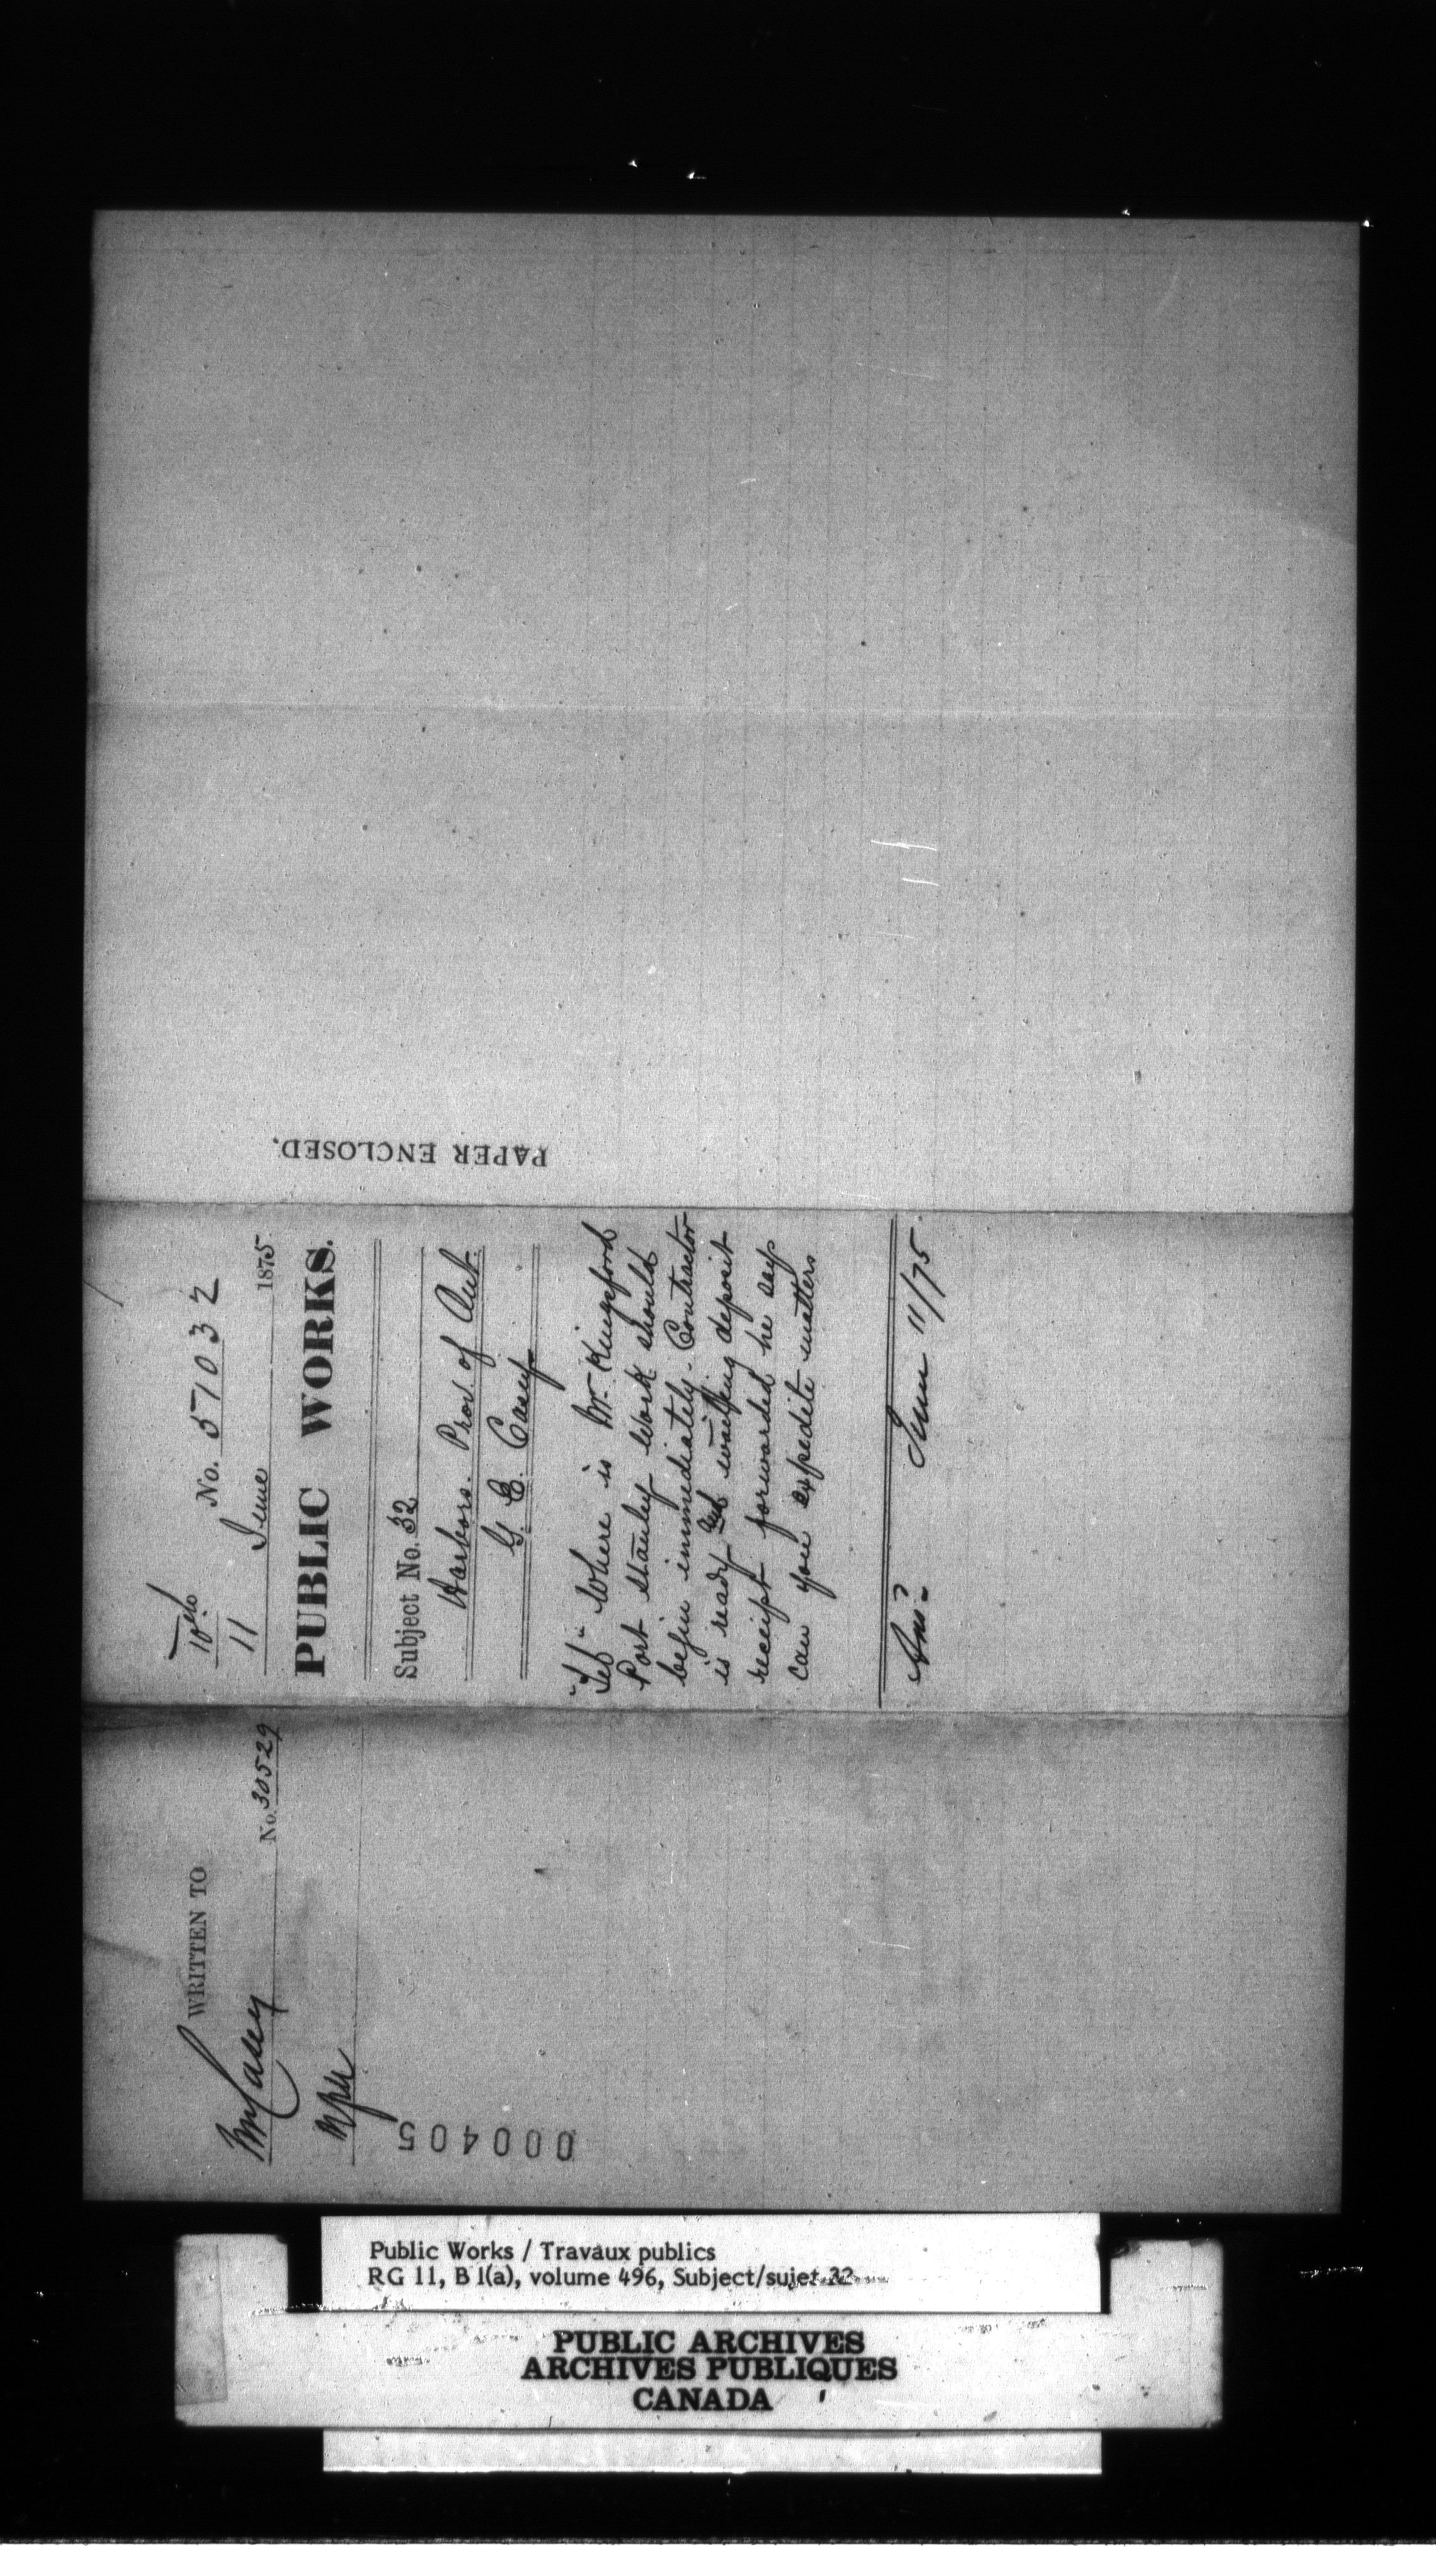 PAPER ENCLOSED.
10th
11 No. 57032
June 1875
PUBLIC WORKS.
Subject No. 32
Harbors. Prov. of Ont.
G. E. Casey
"Tel" Where is Mr Kingsford
Port Stanley work should
begin immediately. Contractor
is ready but waiting deposit
receipt forwarded he says
can you expedite matters
Ansd. June 11/75.
WRITTEN TO
Mr Casey No. 30529
000405
Public Works / Travaux publics
RG 11, B 1(a), volume 496, Subject/sujet 32
PUBLIC ARCHIVES
ARCHIVES PUBLIQUES
CANADA